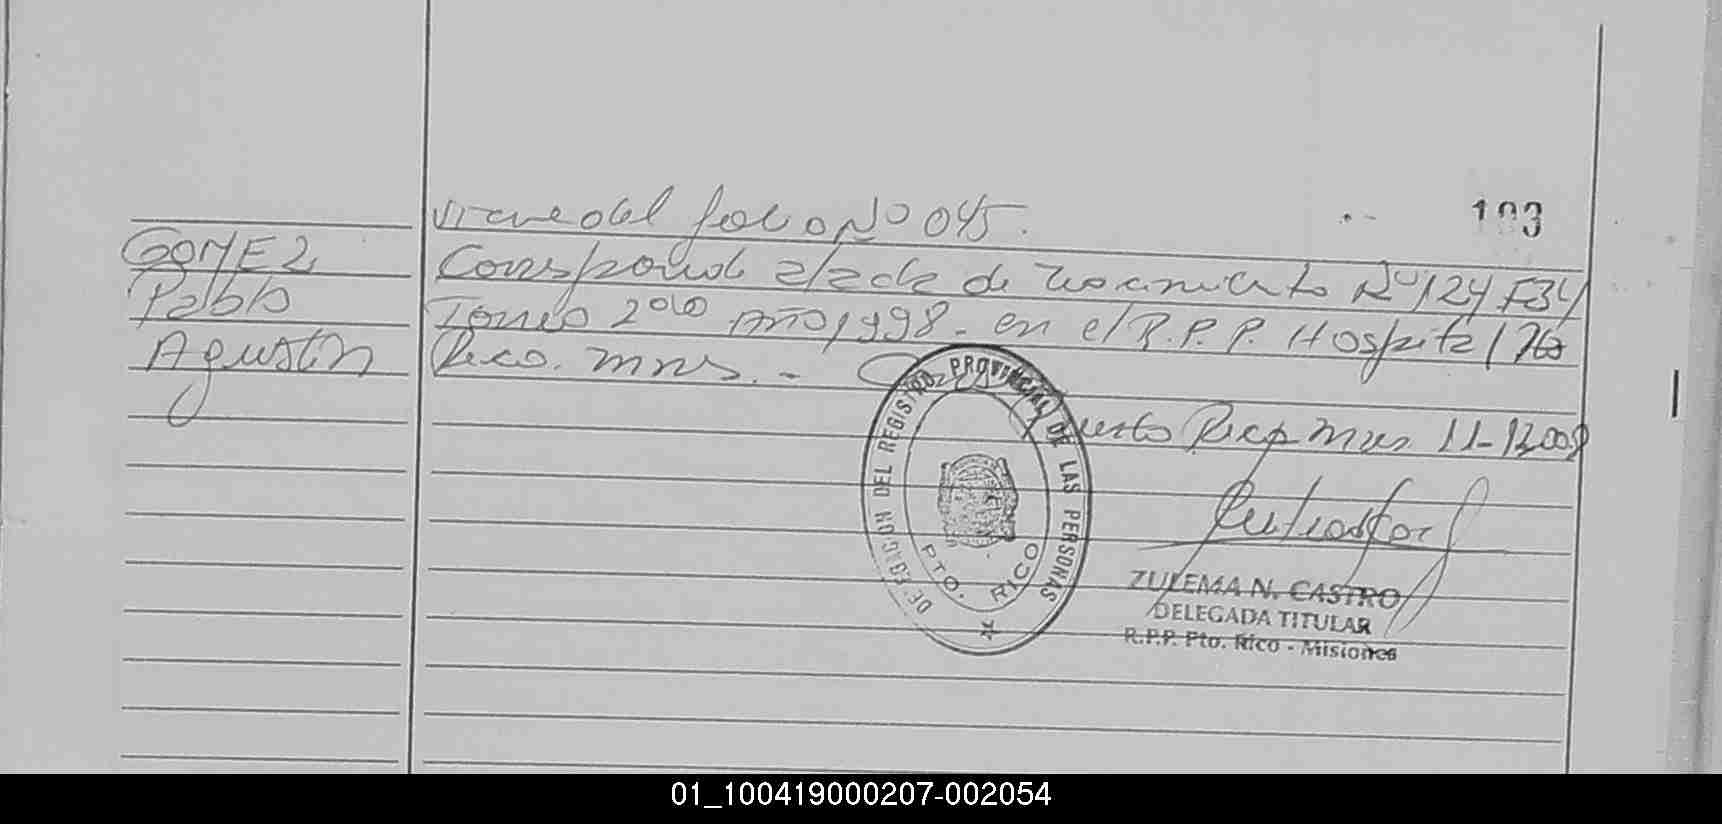 viene del folio Nº 045.
193
GOMEZ
Pablo
Agustín
Corresponde a/acta de nacimiento Nº 124 F34
Tomo 2do Año 1998- en el R.P.P. Hospital Pto
Rico. Mnes. -
Puerto Rico Mnes 11-
DELEGACION DEL REGISTRO PROVINCIAL DE LAS PERSONAS
PTO. RICO
ZULEMA N. CASTRO
DELEGADA TITULAR
R.P.P. Pto. Rico - Misiones
01_100419000207-002054